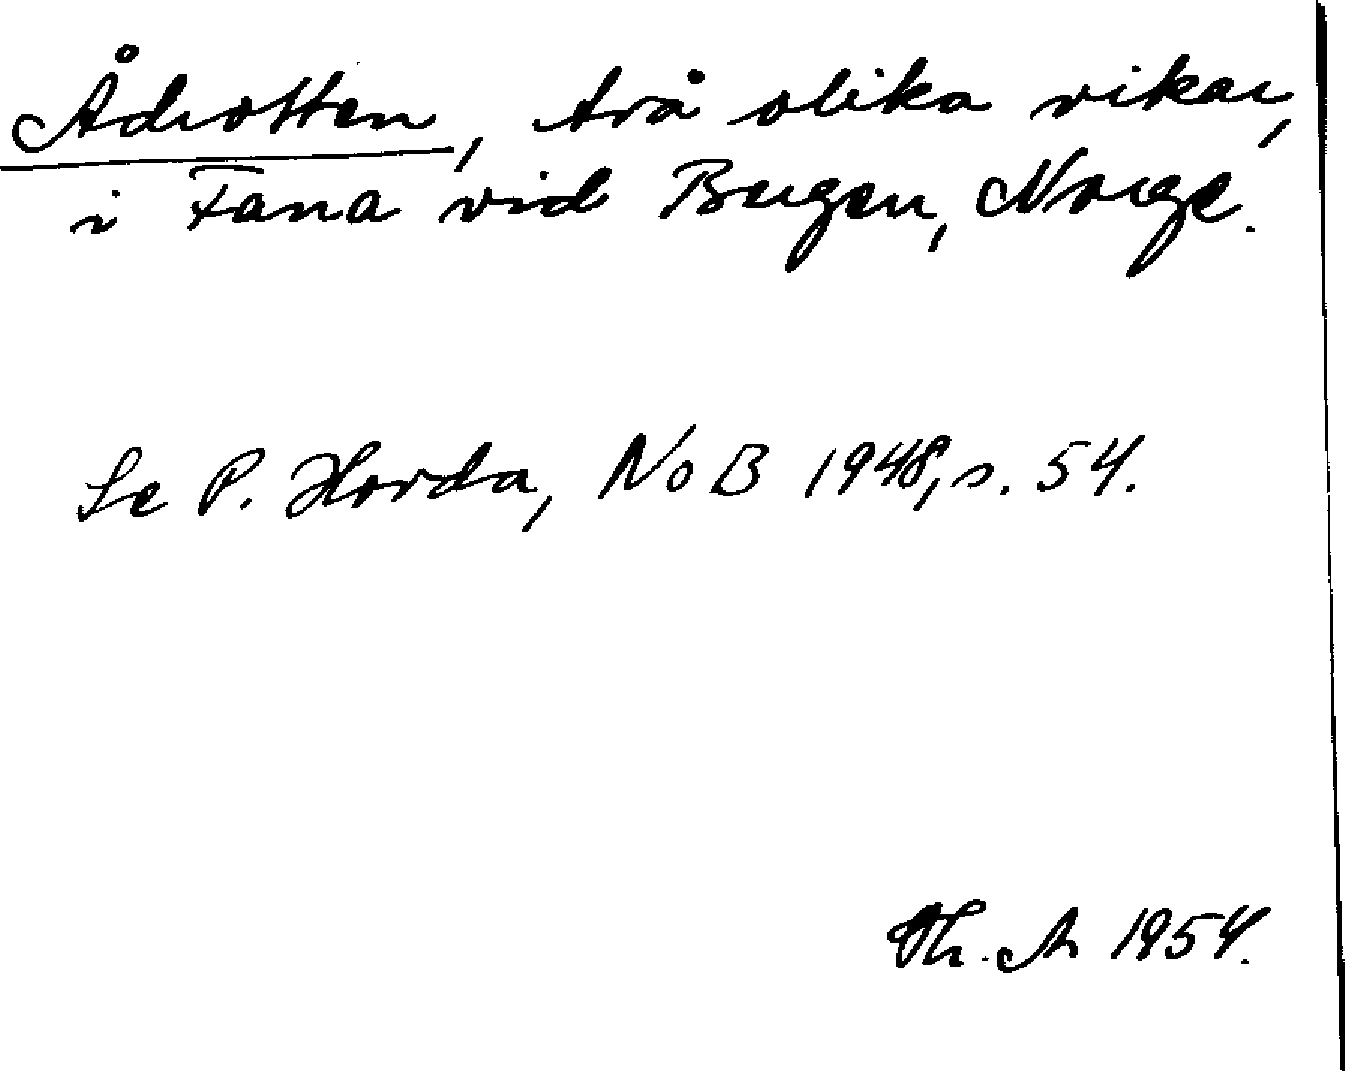 Ådrotten, två olika vikar,
i Fana vid Bergen, Norge.
Se P. Horda, NoB 1948, s. 54.
Th. A 1954.